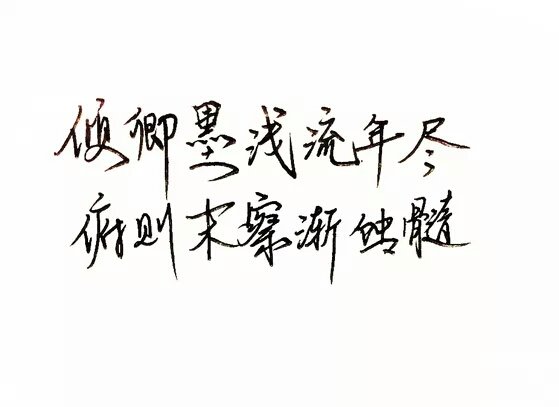 倾卿墨浅流年尽
俯则未察渐蚀髓